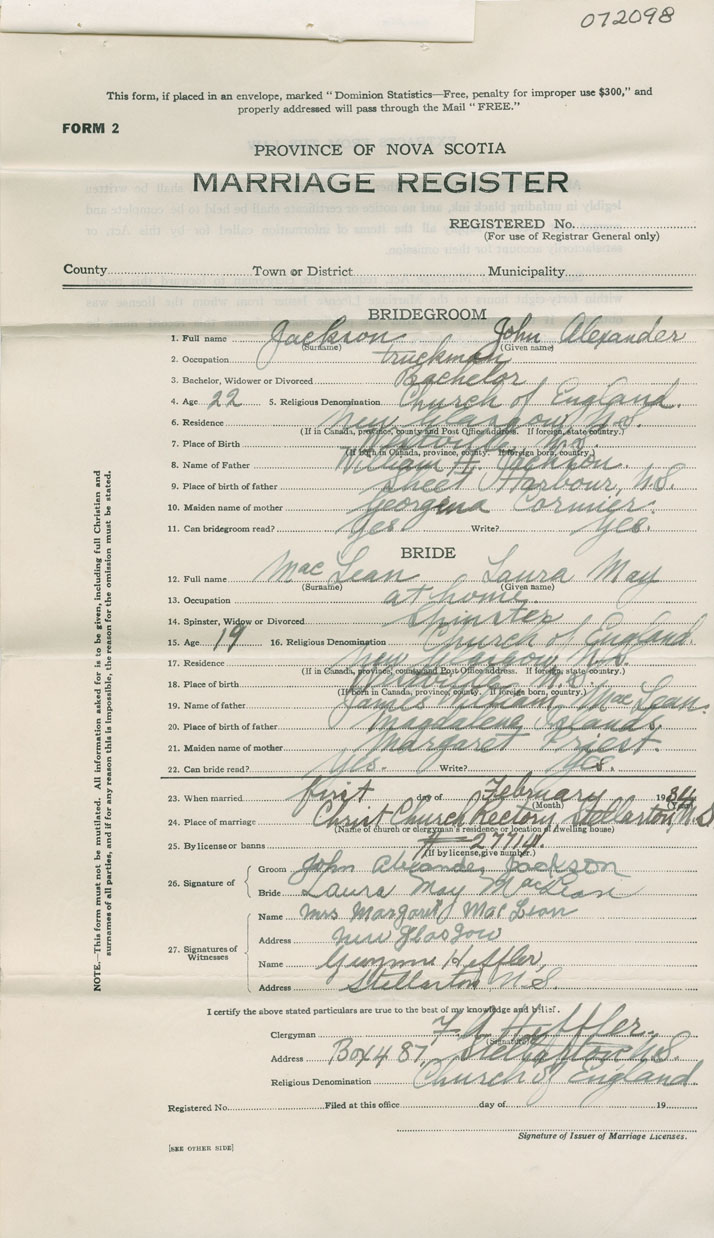 072098
This form, if placed in an envelope, marked "Dominion Statistics—Free, penalty for improper use $300," and
properly addressed will pass through the Mail "FREE."
FORM 2
PROVINCE OF NOVA SCOTIA
MARRIAGE REGISTER
REGISTERED No.
(For use of Registrar General only)
County Town or District Municipality
BRIDEGROOM
1. Full name Jackson John Alexander
(Surname) (Given name)
2. Occupation truckman
3. Bachelor, Widower or Divorced Bachelor
4. Age 22 5. Religious Denomination Church of England.
6. Residence New Glasgow N.S.
(If in Canada, province, county and Post Office address. If foreign, state country.)
7. Place of Birth Westville N.S.
(If born in Canada, province, county. If foreign born, country.)
8. Name of Father William H. Jackson.
9. Place of birth of father Sheet Harbour, N.S.
10. Maiden name of mother Georgena Cormier.
11. Can bridegroom read? Yes Write? Yes.
BRIDE
12. Full name MacLean Laura May
(Surname) (Given name)
13. Occupation at home.
14. Spinster, Widow or Divorced Spinster
15. Age 19 16. Religious Denomination Church of England.
17. Residence New Glasgow N.S.
(If in Canada, province, county and Post Office address. If foreign, state country.)
18. Place of birth N.S.
(If born in Canada, province, county. If foreign born, country.)
19. Name of father James William MacLean.
20. Place of birth of father Magdalena Islands
21. Maiden name of mother Margaret Priest.
22. Can bride read? Yes. Write? Yes.
23. When married first day of February 1934
(Month) (Year)
24. Place of marriage Christ Church Rectory, Stellarton, N.S
(Name of church or clergyman's residence or location of dwelling house)
25. By license or banns # 27714.
(If by license, give number.)
26. Signature of
Groom John Alexander Jackson
Bride Laura May MacLean
27. Signatures of Witnesses
Name Mrs Margaret MacLean
Address New Glasgow
Name Heffler,
Address Stellarton N.S.
I certify the above stated particulars are true to the best of my knowledge and belief.
Clergyman Heffler.
(Signature)
Address Box 487 Stellarton N.S.
Religious Denomination Church of England
Registered No. Filed at this office day of 19
Signature of Issuer of Marriage Licenses.
[SEE OTHER SIDE]
NOTE.—This form must not be mutilated. All information asked for is to be given, including full Christian and
surnames of all parties, and if for any reason this is impossible, the reason for the omission must be stated.